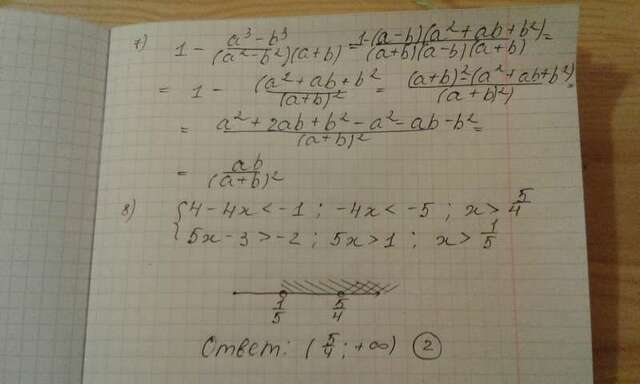 7) 1 - \frac{a^3 - b^3}{(a^2 - b^2)(a+b)} = 1 - \frac{(a-b)(a^2+ab+b^2)}{(a+b)(a-b)(a+b)} =
= 1 - \frac{(a^2+ab+b^2}{(a+b)^2} = \frac{(a+b)^2 - (a^2+ab+b^2)}{(a+b)^2)} =
= \frac{a^2+2ab+b^2-a^2-ab-b^2}{(a+b)^2} =
= \frac{ab}{(a+b)^2}
8) { 4-4x < -1 ; -4x < -5 ; x > \frac{5}{4}
5x-3 > -2 ; 5x > 1 ; x > \frac{1}{5}
\frac{1}{5} \frac{5}{4}
Ответ: (\frac{5}{4}; +∞) 2